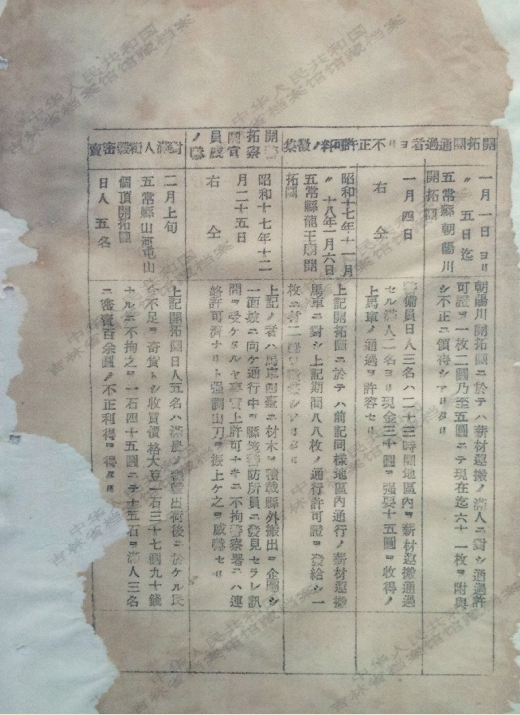 開拓團通過者ヨリ不正許可料ノ
對滿人 密賣
一月一日ヨリ
〃 五日迄
五常縣朝陽川
開拓團
朝陽川開拓團ニ於テハ薪材運搬ノ滿人ニ對シ通過許
可證ヲ一枚二圓乃至五圓ニテ現在迄六十一枚ヲ附與
シ不正ニ領得シ
一月四日
右仝
警備員日人三名ハ二十三時開地區內ヲ薪材運搬通過
セル滿人二名ヨリ現金三十圓ヲ強要十五圓ヲ收得ノ
上馬車ノ通過ヲ許容セリ
昭和十七年十一月
〃 十八年一月六日
五常縣龍王廟開
拓團
上記開拓團ニ於テハ前記同樣地區內通行ノ薪材運搬
馬車ニ對シ上記期間八八枚ノ通行許可證ヲ發給シ一
枚ニ
昭和十七年十二
月二十五日
右仝
上記ノ者ハ馬車 ニ材木ヲ積載縣外搬出ヲ企圖シ
一面坡ニ向ケ通行中 縣 防所員ニ發見セラレ訊
問ヲ受ケタルヤ事實上許可ナキニ不拘警察署ニハ連
絡許可濟ナリト強調山刀ヲ振上ケ之ヲ威嚇セリ
二月上旬
五常縣山河屯山
個頂開拓團
日人五名
上記開拓團日人五名ハ滿農ノ 出荷後ニ於ケル民
食不足ヲ奇貨トシ收買價格大豆一石三十七圓九十錢
ナルニ不拘之ヲ一石四十五圓ニテ十五石ヲ滿人三名
ニ密賣百余圓ノ不正利得ヲ得